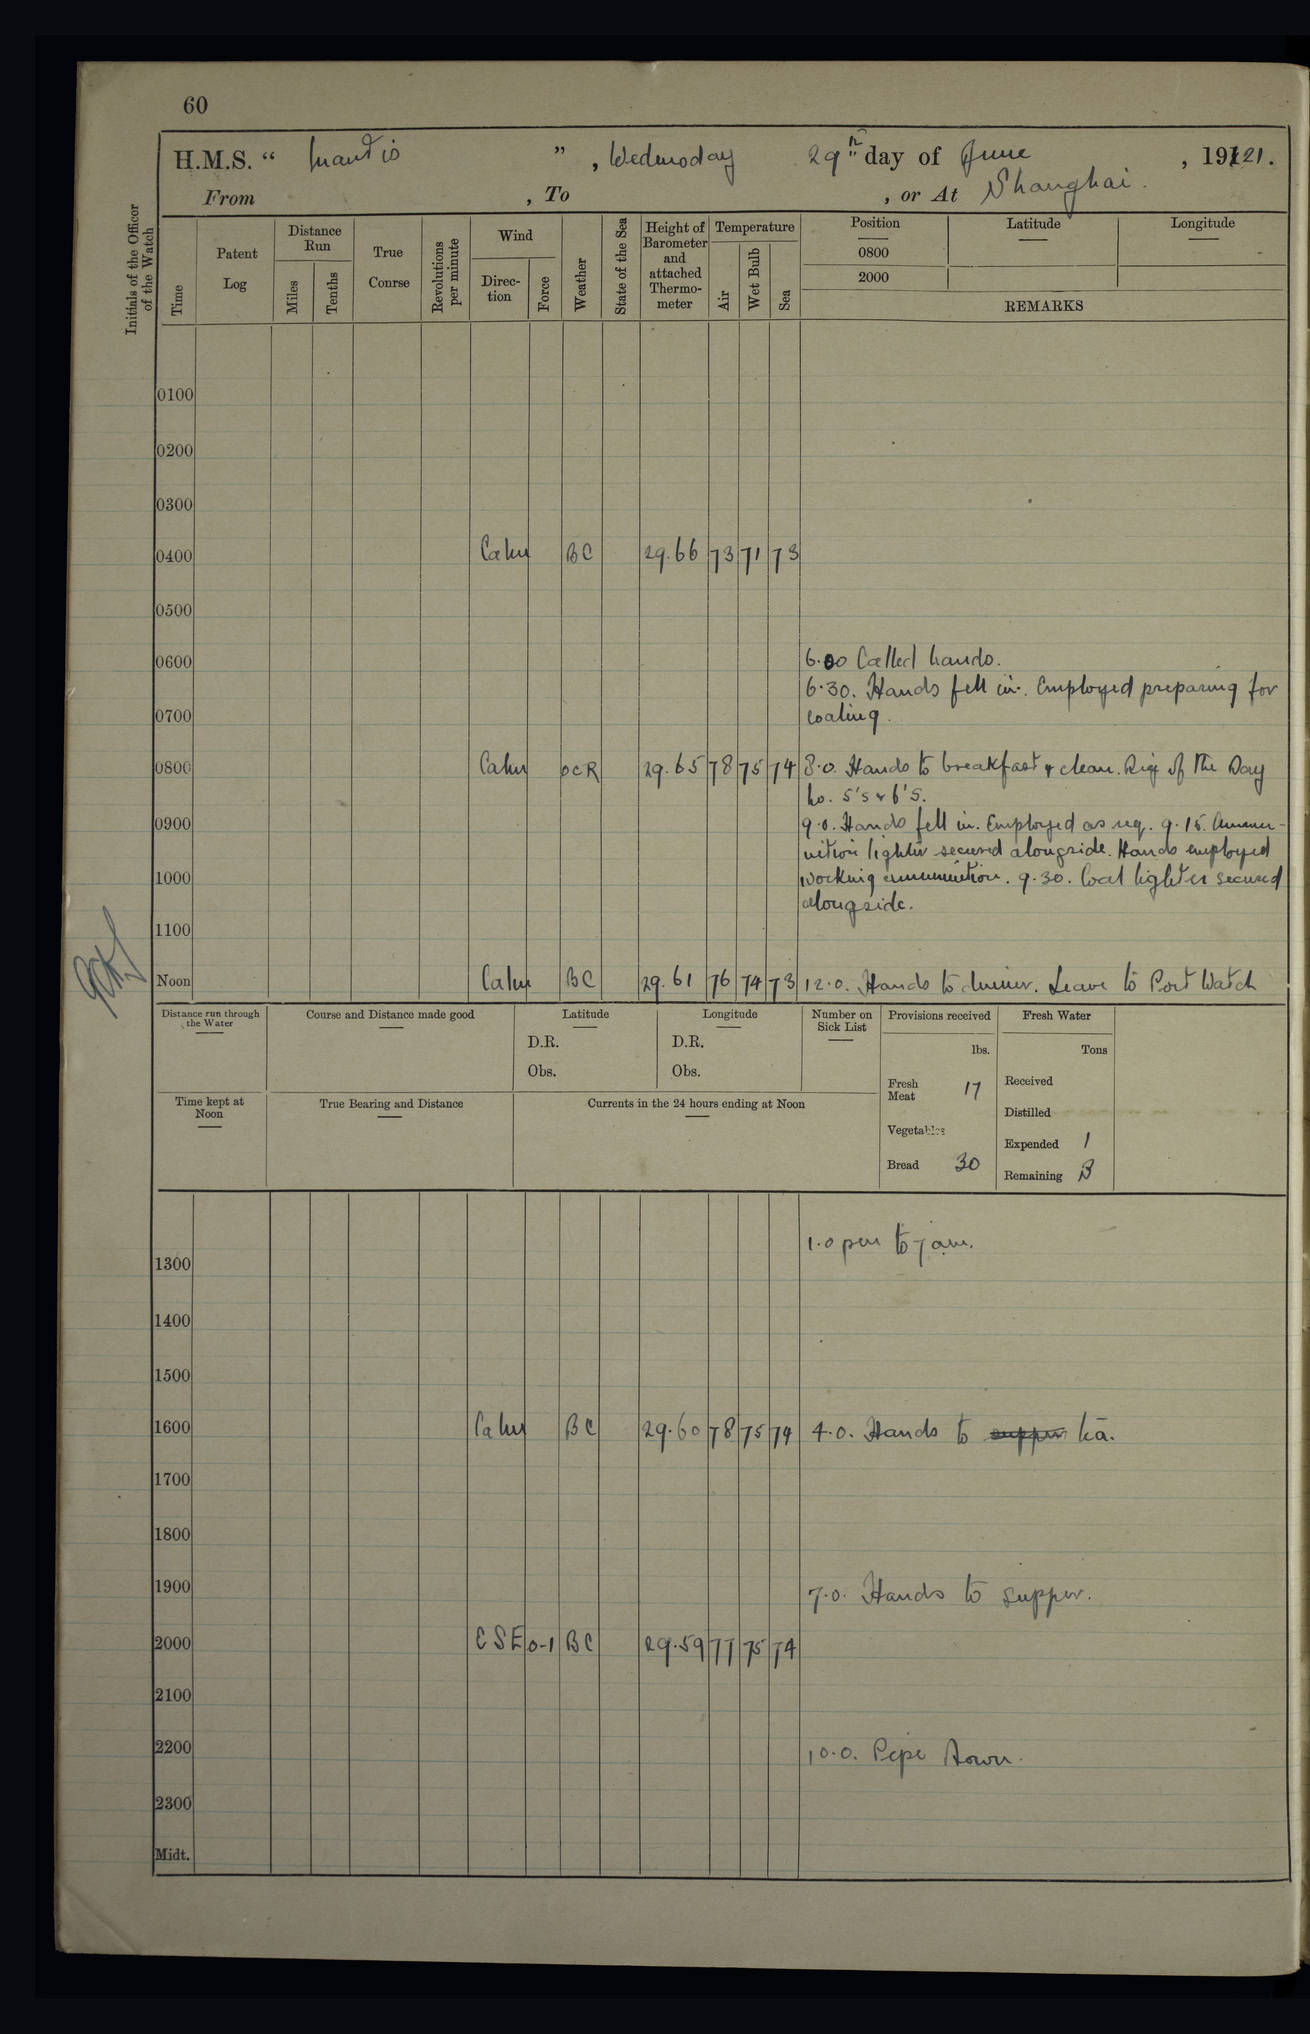 60
H.M.S. “ Mantis ” , Wednesday 29th day of June , 1921.
From , To , or At Shanghai.
Initials of the Officer of the Watch
Time
Patent Log
Distance Run
Miles
Tenths
True Course
Revolutions per minute
Wind
Direction
Force
Weather
State of the Sea
Height of Barometer and attached Thermometer
Temperature
Air
Wet Bulb
Sea
Position
Latitude
Longitude
0800
2000
REMARKS
0100
0200
0300
0400 Calm BC 29.66 73 71 73
0500
0600 6.00 Called hands.
6.30. Hands fell in. Employed preparing for
0700 coaling.
0800 Calm OCR 29.65 78 75 74 8.0. Hands to breakfast & clean. Rig of the Day
No. 5's & 6's.
0900 9.0. Hands fell in. Employed as req. 9.15. Ammu-
nition lighter secured alongside. Hands employed
1000 working ammunition. 9.30. Coal lighter secured
alongside.
1100
Noon Calm BC 29.61 76 74 73 12.0. Hands to dinner. Leave to Port Watch
Distance run through the Water
Course and Distance made good
Latitude
D.R.
Obs.
Longitude
D.R.
Obs.
Number on Sick List
Provisions received
lbs.
Fresh Meat 17
Vegetables
Bread 30
Fresh Water
Tons
Received
Distilled
Expended 1
Remaining
Time kept at Noon
True Bearing and Distance
Currents in the 24 hours ending at Noon
1.0 pm to 7 am.
1300
1400
1500
1600 Calm BC 29.60 78 75 74 4.0. Hands to supper tea.
1700
1800
1900 7.0. Hands to supper.
2000 ESE 0-1 BC 29.59 77 75 74
2100
2200 10.0. Pipe down.
2300
Midt.